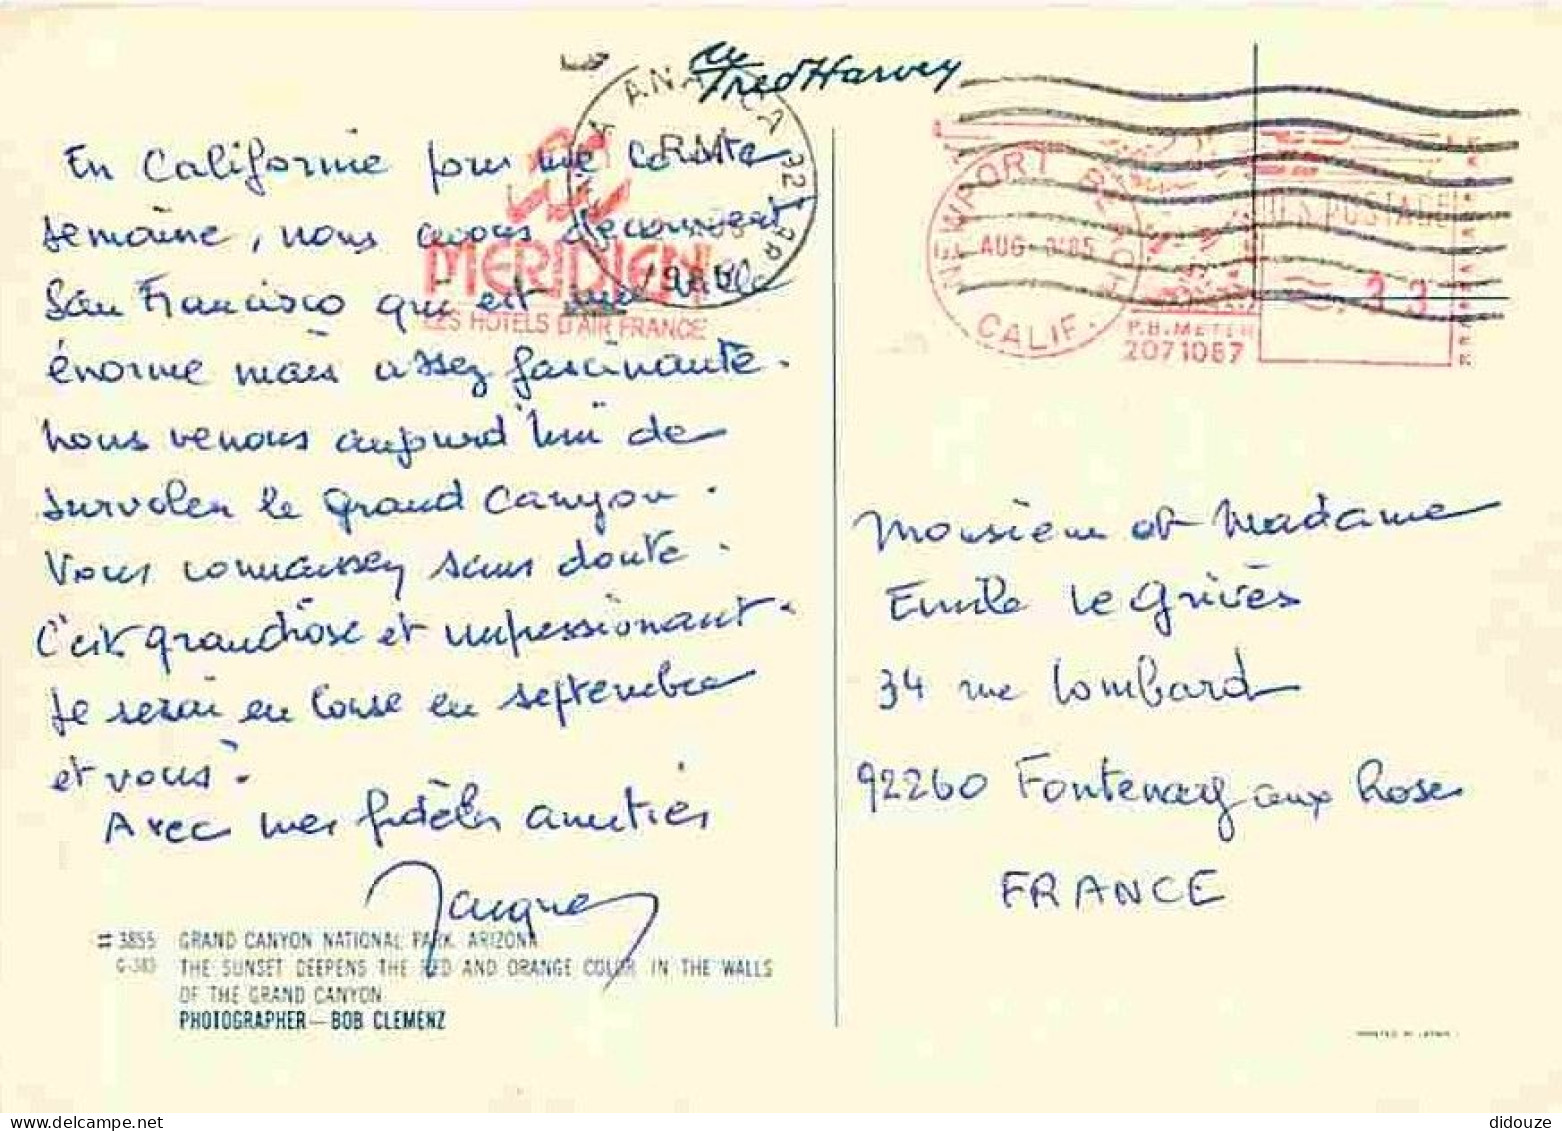 a Fred Harvey
En Californie pour une courte
semaine, nous avons découvert
San Francisco qui est une ville
énorme mais assez fascinante.
nous venons aujourd'hui de
survoler le grand canyon.
Vous connaissez sans doute.
C'est grandiose et impressionnant.
Je serai en Corse en septembre
et vous?
Avec mes fidèles amitiés
Jacques
SANTA ANA CA
P.M.
MERIDIEN
LES HOTELS D'AIR FRANCE
NEWPORT BEACH
AUG 85
CALIF.
U.S. POSTAGE
.33
P.B. METER
2071067
Monsieur et Madame
Emile Le Grivès
34 rue Lombard
92260 Fontenay aux Roses
FRANCE
# 3855 GRAND CANYON NATIONAL PARK, ARIZONA
G-383 THE SUNSET DEEPENS THE RED AND ORANGE COLOR IN THE WALLS
OF THE GRAND CANYON
PHOTOGRAPHER—BOB CLEMENZ
didouze